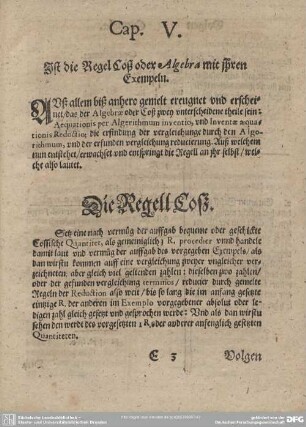 Cap. V.
Ist die Regel Coß oder Algebra mit jhren
Exempeln.
Auß allem biß anhero gemelt ereugnet vnd erschei-
net/das der Algebræ oder Coß zwey vnterscheidene theile sein:
Aequationis per Algorithmum inventio, vnd Inventæ æqua-
tionis Reductio; die erfindung der vergleichunge durch den Algo-
rithmum, vnd der erfunden vergleichung reducierung. Auß welchem
nun entstehet/erwachset vnd entspringt die Regell an jhr selbst/wel-
che also lautet.
Die Regell Coß.
Setz eine nach vermüg der auffgab bequeme oder geschickte
Cossische Quantitet, als gemeiniglich 1 R. procedier vnnd handele
damit laut vnd vermüg der auffgab des vorgegeben Exempels/ als
dan wirstu kommen auff eine vergleichung zweyer vngleicher ver-
zeichneten/aber gleich viel geltenden zahlen: dieselben zwo zahlen/
oder der gefunden vergleichung terminos/ reducier durch gemelte
Regeln der Reduction also weit/biß so lang die im anfang gesetzte
eintzige R. der anderen im Exemplo vorgegebener absolut oder le-
digen zahl gleich gesetzt vnd gesprochen werde: Vnd als dan wirstu
sehen den werdt des vorgesetzten 1 R. oder anderer anfenglich gesetzten
Quantiteten.
E 3 Volgen